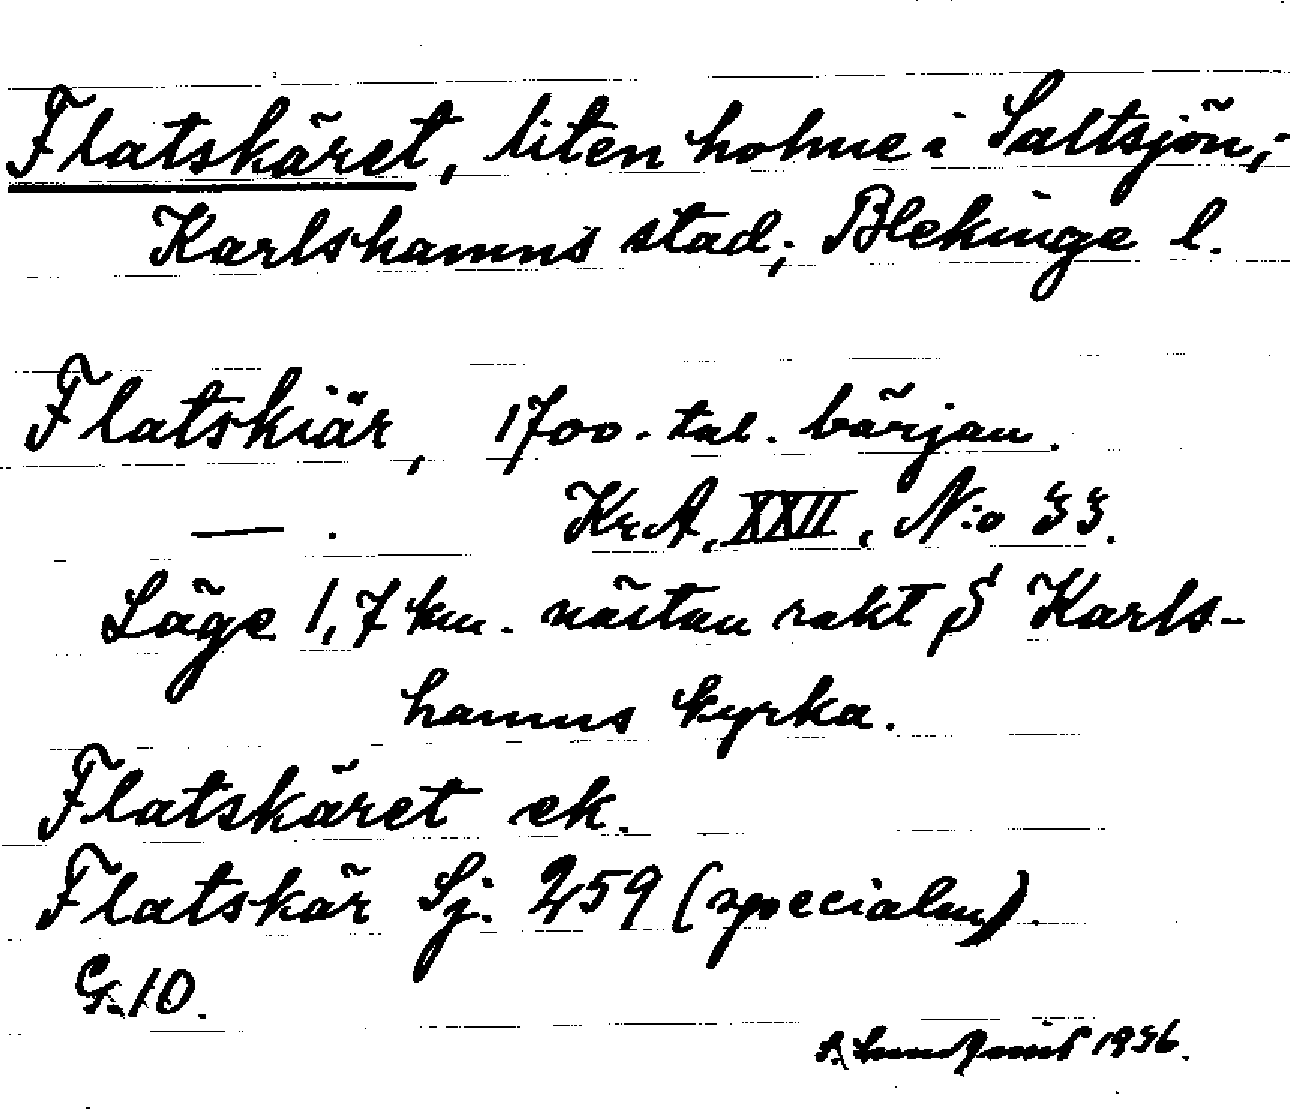 Flatskäret, liten holme i Saltsjön;
Karlshamns stad; Blekinge l.
Flatskiär, 1700-tal. början.
— . KrA, XXII, N:o 33.
Läge 1,7 km. nästan rakt S Karls-
hamns kyrka.
Flatskäret ek.
Flatskär Sj. 259 (specialen).
G. 10.
Lundqvist 1936.